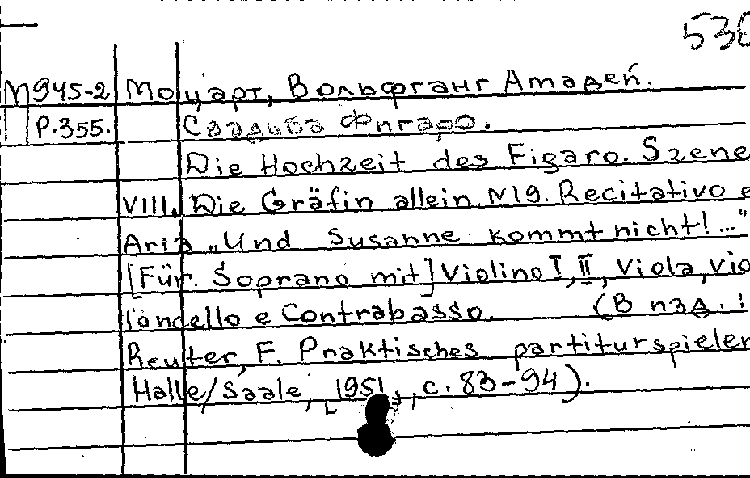 530
М945-2 Моцарт, Вольфганг Амадей.
Р.355. Свадьба Фигаро.
Die Hochzeit des Figaro. Szene
VIII. Die Gräfin allein N19. Recitativo e
Aria „Und Susanne kommt nicht!..."
[Für Soprano mit] Violino I, II, Viola, vio
loncello e Contrabasso. (В изд.:
Reuter, F. Praktisches partiturspielen
Halle/Saale, [1951], с. 83-94).